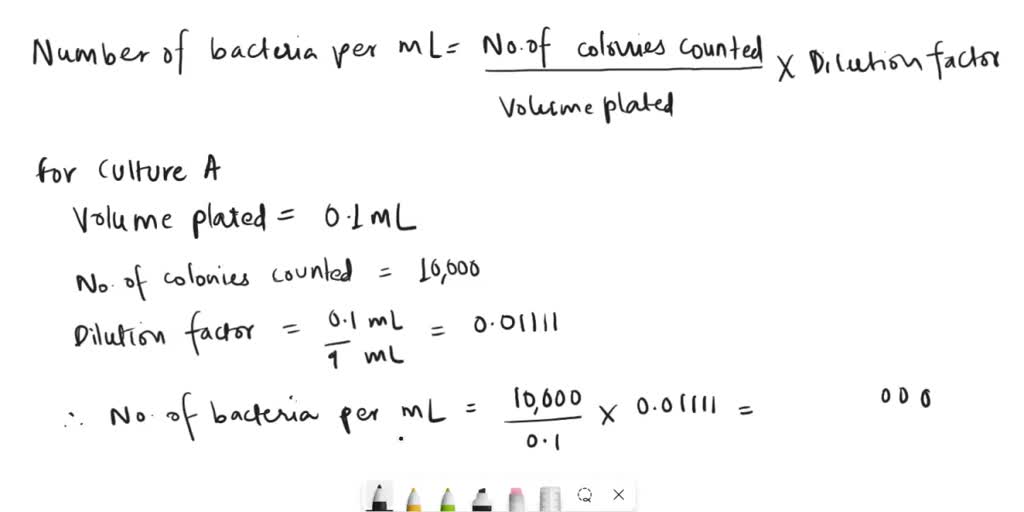 Number of bacteria per mL = No. of colonies counted / Volume plated X Dilution factor
for Culture A
Volume plated = 0.1 mL
No. of colonies counted = 10,000
Dilution factor = 0.1 mL / 9 mL = 0.01111
∴ No. of bacteria per mL = 10,000 / 0.1 X 0.01111 = 000